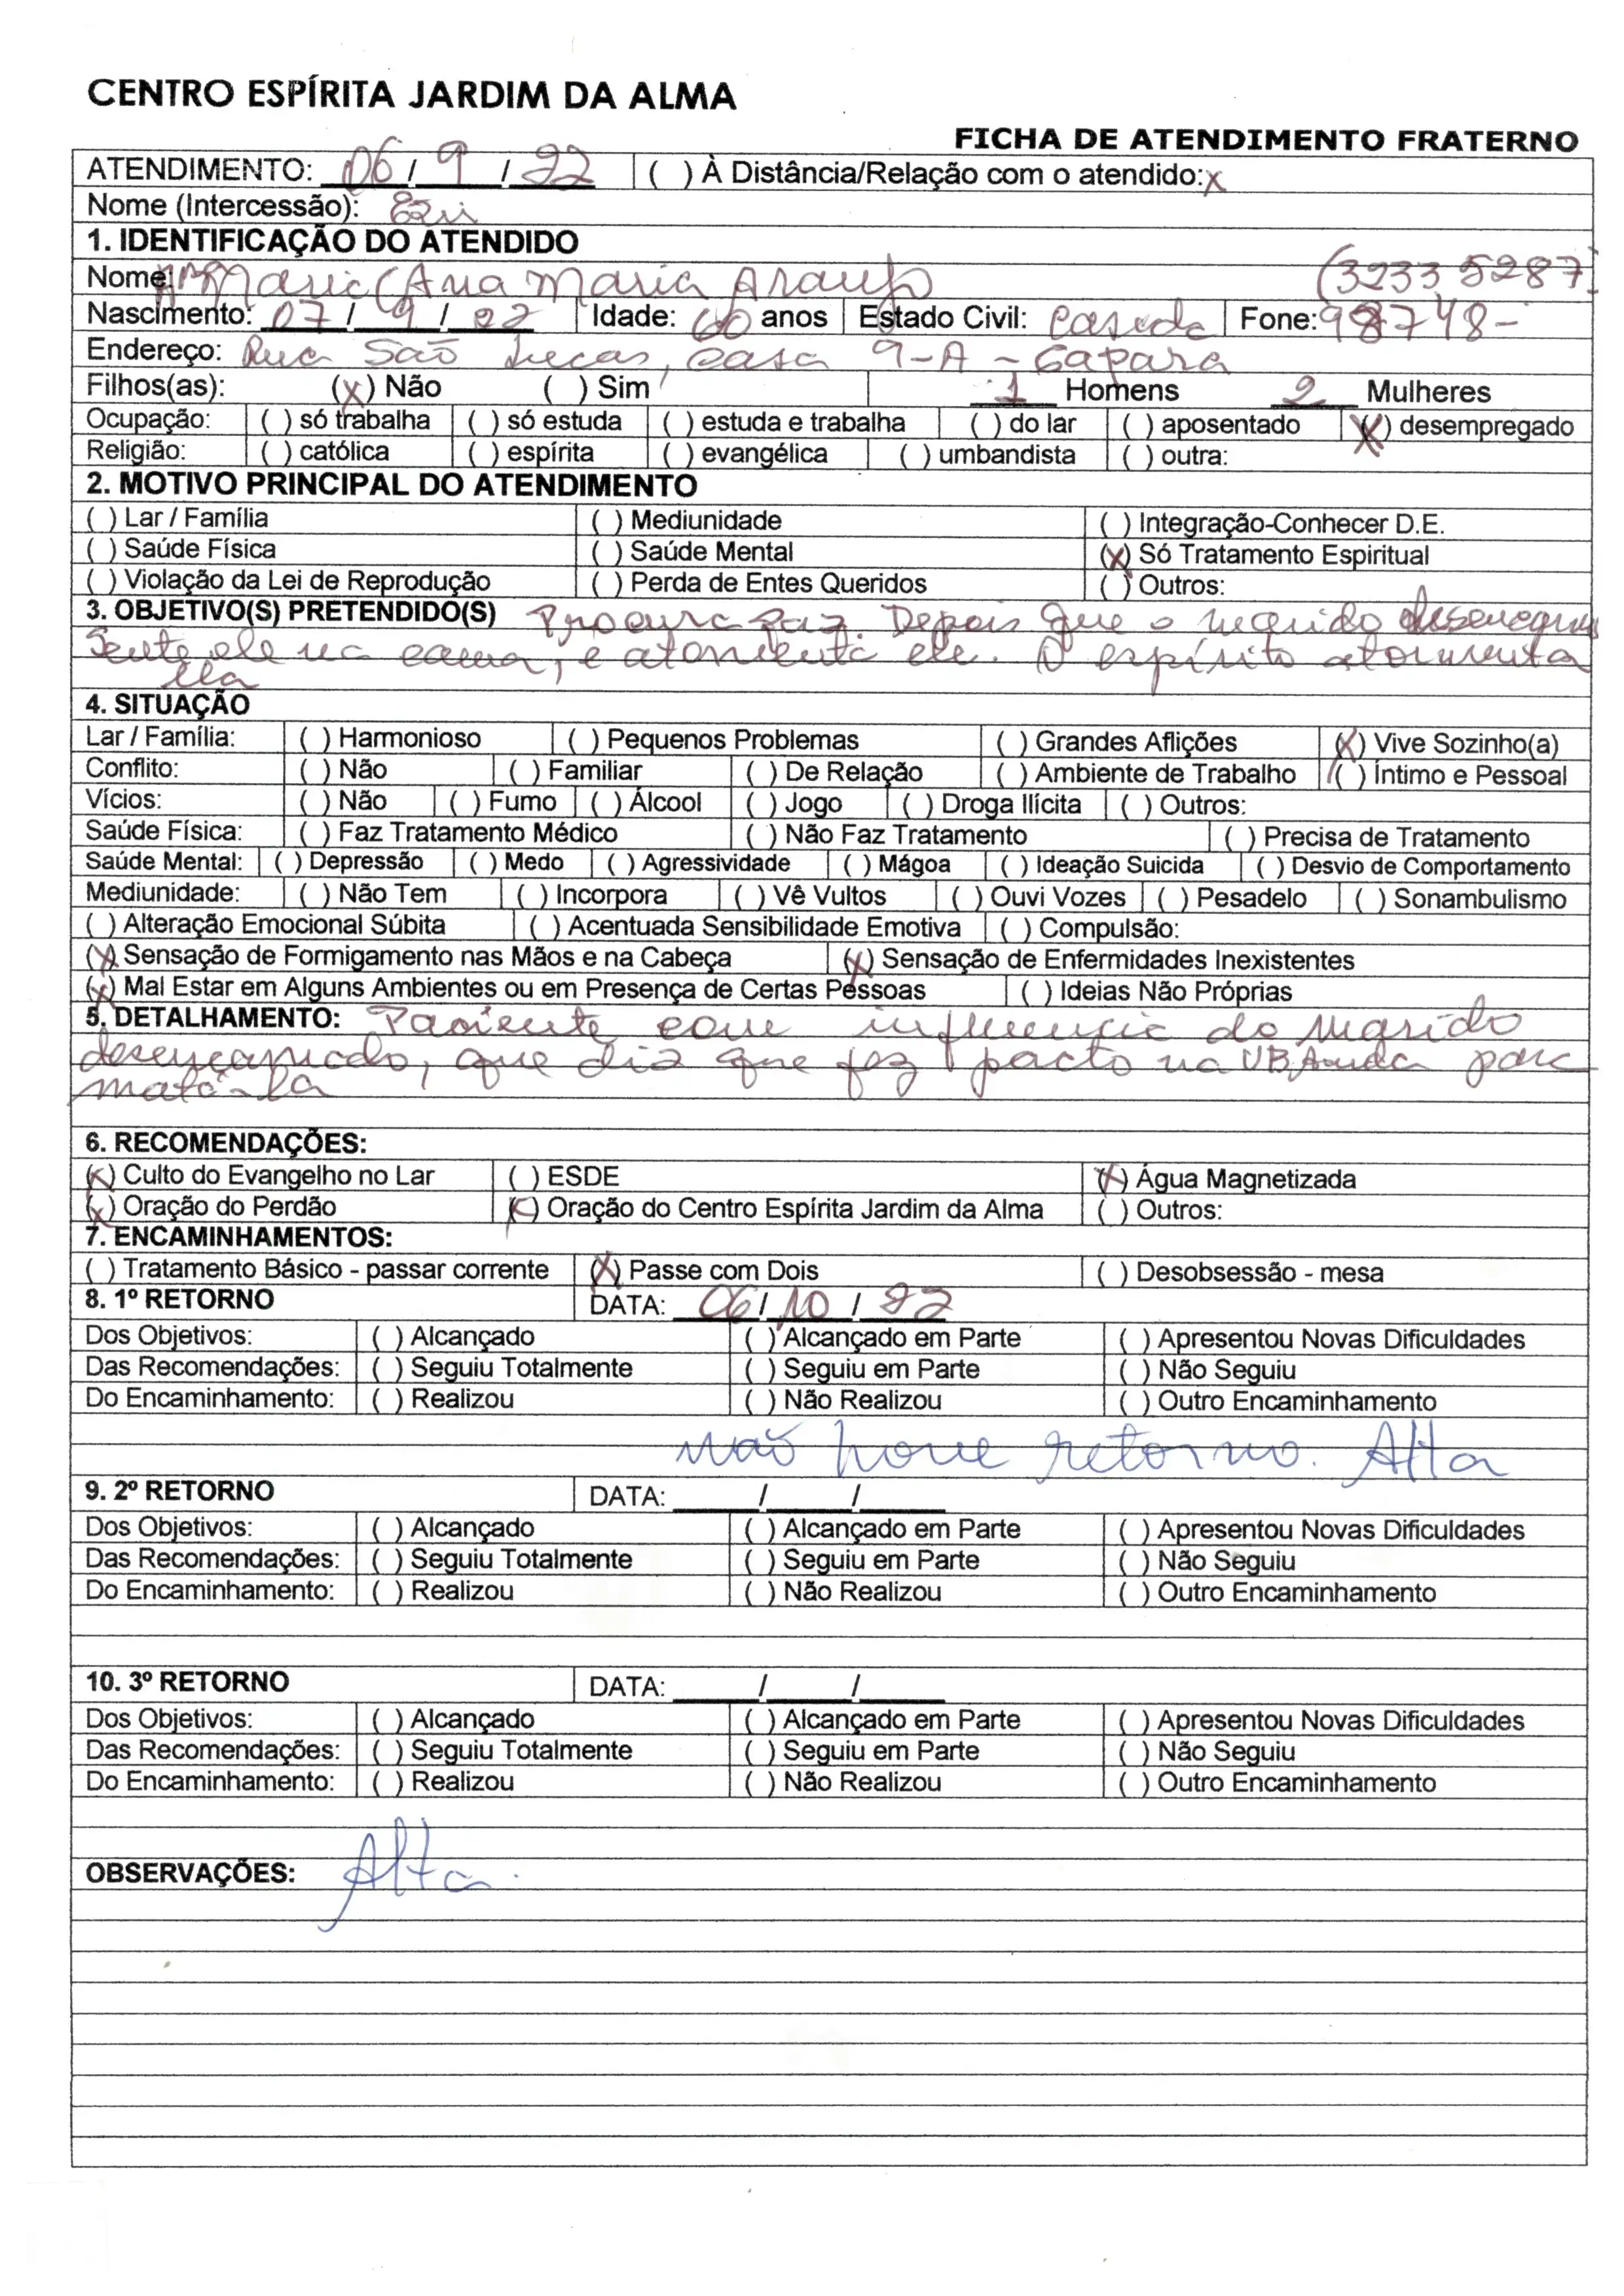 CENTRO ESPÍRITA JARDIM DA ALMA
FICHA DE ATENDIMENTO FRATERNO
ATENDIMENTO: 06 / 9 / 22 ( ) À Distância/Relação com o atendido: x
Nome (Intercessão):
1. IDENTIFICAÇÃO DO ATENDIDO (3233 5287)
Nome: Maria (Ana Maria Araujo
Nascimento: 07 / 9 / Idade: 60 anos Estado Civil: casada Fone: 98748-
Endereço: Rua São Lucas, casa 9-A - Gapara
Filhos(as): (x) Não ( ) Sim 1 Homens 2 Mulheres
Ocupação: ( ) só trabalha ( ) só estuda ( ) estuda e trabalha ( ) do lar ( ) aposentado (x) desempregado
Religião: ( ) católica ( ) espírita ( ) evangélica ( ) umbandista ( ) outra:
2. MOTIVO PRINCIPAL DO ATENDIMENTO
( ) Lar / Família ( ) Mediunidade ( ) Integração-Conhecer D.E.
( ) Saúde Física ( ) Saúde Mental (x) Só Tratamento Espiritual
( ) Violação da Lei de Reprodução ( ) Perda de Entes Queridos ( ) Outros:
3. OBJETIVO(S) PRETENDIDO(S) Procura paz. Depois que o marido
Sente ele na cama, e atormenta ele. O espírito atormenta
ela
4. SITUAÇÃO
Lar / Família: ( ) Harmonioso ( ) Pequenos Problemas ( ) Grandes Aflições (x) Vive Sozinho(a)
Conflito: ( ) Não ( ) Familiar ( ) De Relação ( ) Ambiente de Trabalho ( ) Íntimo e Pessoal
Vícios: ( ) Não ( ) Fumo ( ) Álcool ( ) Jogo ( ) Droga Ilícita ( ) Outros:
Saúde Física: ( ) Faz Tratamento Médico ( ) Não Faz Tratamento ( ) Precisa de Tratamento
Saúde Mental: ( ) Depressão ( ) Medo ( ) Agressividade ( ) Mágoa ( ) Ideação Suicida ( ) Desvio de Comportamento
Mediunidade: ( ) Não Tem ( ) Incorpora ( ) Vê Vultos ( ) Ouvi Vozes ( ) Pesadelo ( ) Sonambulismo
( ) Alteração Emocional Súbita ( ) Acentuada Sensibilidade Emotiva ( ) Compulsão:
(x) Sensação de Formigamento nas Mãos e na Cabeça (x) Sensação de Enfermidades Inexistentes
(x) Mal Estar em Alguns Ambientes ou em Presença de Certas Pessoas ( ) Ideias Não Próprias
5. DETALHAMENTO: Paciente com influencia do marido
desencarnado, que diz que fez pacto na UBAnda para
matá-la
6. RECOMENDAÇÕES:
(x) Culto do Evangelho no Lar ( ) ESDE (x) Água Magnetizada
(x) Oração do Perdão (x) Oração do Centro Espírita Jardim da Alma ( ) Outros:
7. ENCAMINHAMENTOS:
( ) Tratamento Básico - passar corrente (x) Passe com Dois ( ) Desobsessão - mesa
8. 1º RETORNO DATA: 06 / 10 / 22
Dos Objetivos: ( ) Alcançado ( ) Alcançado em Parte ( ) Apresentou Novas Dificuldades
Das Recomendações: ( ) Seguiu Totalmente ( ) Seguiu em Parte ( ) Não Seguiu
Do Encaminhamento: ( ) Realizou ( ) Não Realizou ( ) Outro Encaminhamento
não houve retorno. Alta
9. 2º RETORNO DATA: / /
Dos Objetivos: ( ) Alcançado ( ) Alcançado em Parte ( ) Apresentou Novas Dificuldades
Das Recomendações: ( ) Seguiu Totalmente ( ) Seguiu em Parte ( ) Não Seguiu
Do Encaminhamento: ( ) Realizou ( ) Não Realizou ( ) Outro Encaminhamento
10. 3º RETORNO DATA: / /
Dos Objetivos: ( ) Alcançado ( ) Alcançado em Parte ( ) Apresentou Novas Dificuldades
Das Recomendações: ( ) Seguiu Totalmente ( ) Seguiu em Parte ( ) Não Seguiu
Do Encaminhamento: ( ) Realizou ( ) Não Realizou ( ) Outro Encaminhamento
OBSERVAÇÕES: Alta.